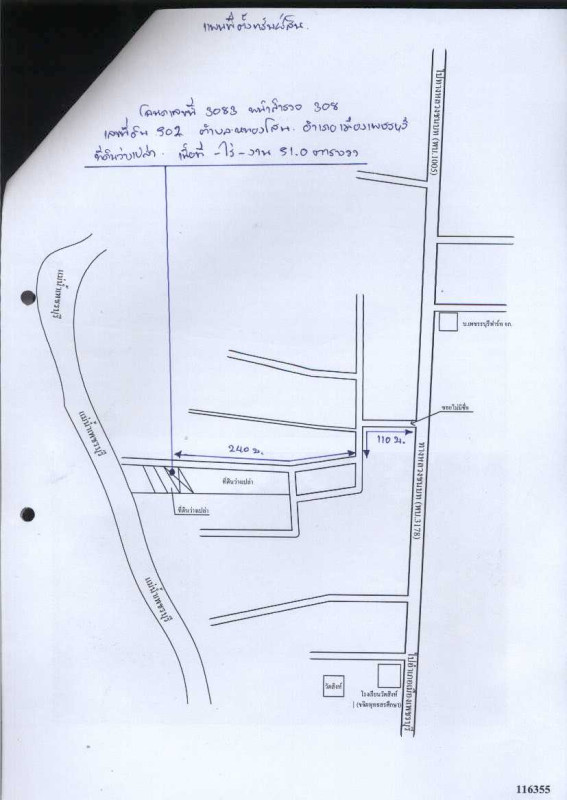 แผนที่ตั้งทรัพย์สิน
โฉนดเลขที่ 3083 หน้าสำรวจ 308
เลขที่ดิน 902 ตำบลหนองโสน อำเภอเมืองเพชรบุรี
ที่ดินว่างเปล่า เนื้อที่ -ไร่ -งาน 51.0 ตารางวา
ไปทางหลวงชนบท (พบ.1005)
แม่น้ำเพชรบุรี
บ.เพชรบุรีฟาร์ม จก.
ซอยไม่มีชื่อ
แม่น้ำเพชรบุรี
240 ม.
110 ม.
ทางหลวงชนบท (พบ.3178)
ที่ดินว่างเปล่า
ที่ดินว่างเปล่า
แม่น้ำเพชรบุรี
ไปอำเภอเมืองเพชรบุรี
วัดสิงห์
โรงเรียนวัดสิงห์
116355